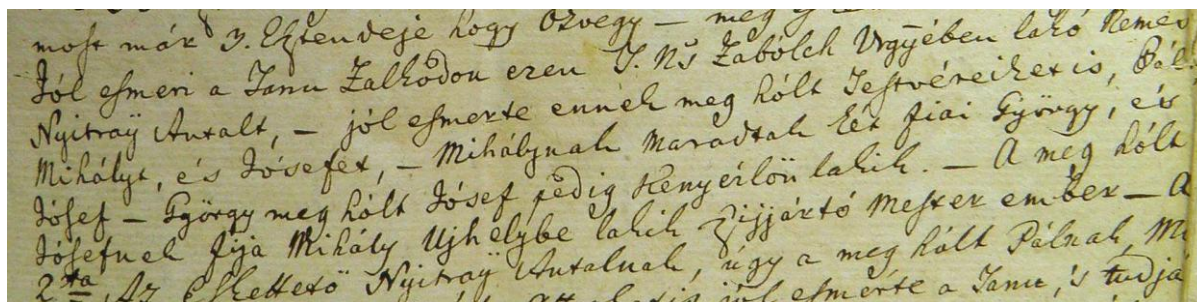 most már 3. Esztendeje hogy Özvegy — meg
Jól esmeri a Tanu Zalkodon ezen T. Ns Zabólch Vrgyében lakó Nemes
Nyitraÿ Antalt, — jól esmerte ennek meg hólt Testvéreiket is, Pál
Mihályt, és Jósefet, — Mihálynak Maradtak két fiai György, és
Jósef — György meg hólt Jósef pedig Kenyérlön lakik. — A meg hólt
Jósefnek fija Mihály Ujhelybe lakik Szijjártó Mester ember — A
2ta Az Eskettetö Nyitraÿ Antalnak, úgy a meg hólt Pálnak, Mi
jól esmérte a Tanu, 's tudja